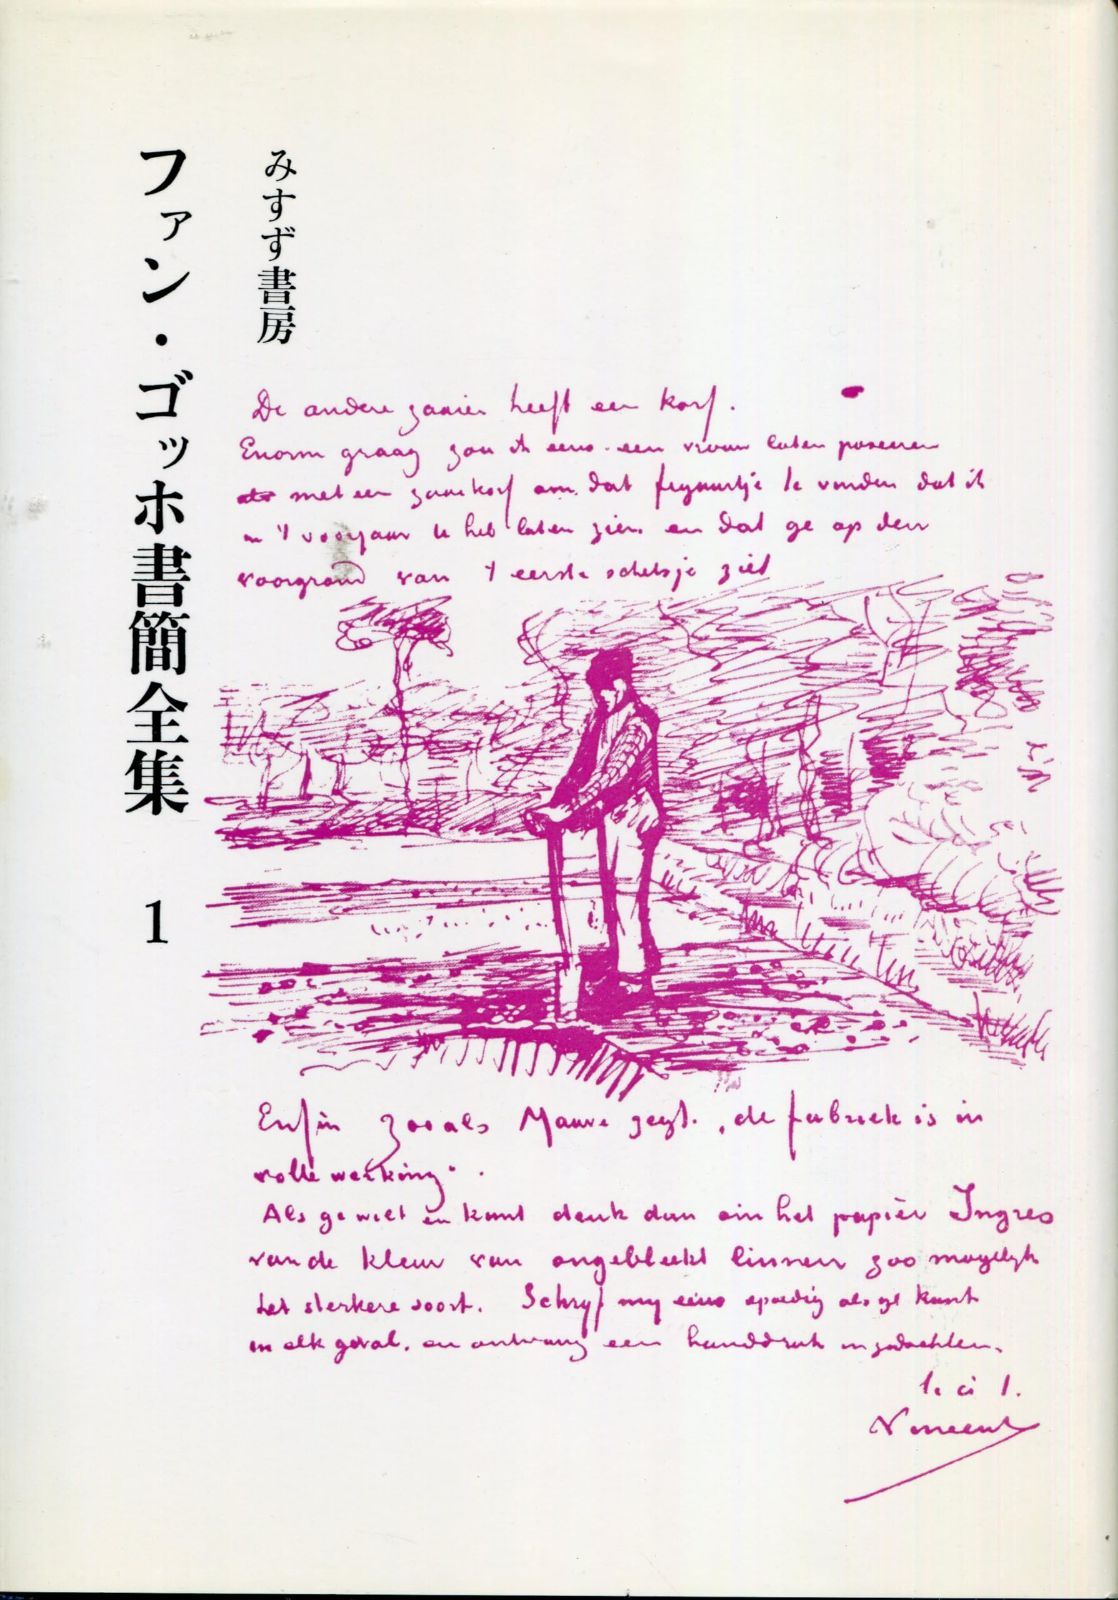 みすず書房
ファン・ゴッホ書簡全集 1
De andere zaaier heeft een korf.
Enorm graag zou ik eens een vrouw laten poseeren
met een zaaikorf om dat figuurtje te vinden dat ik
in 't voorjaar U heb laten zien en dat ge op den
voorgrond van 't eerste schetsje ziet
Enfin zooals Mauve zegt, de fabriek is in
volle werking.
Als ge wilt en kunt denk dan om het papier Ingres
van de kleur van ongebleekt linnen zoo mogelijk
het sterkere soort. Schryf my eens spoedig als ge kunt
in elk geval, en ontvang een handdruk in gedachten,
t. à t.
Vincent